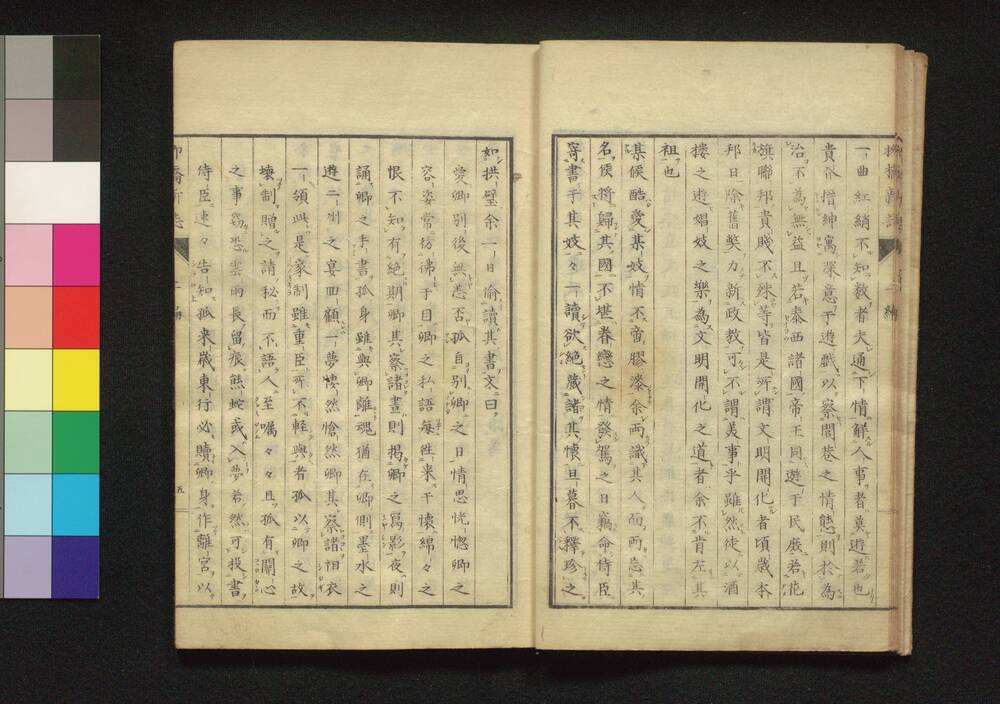 一曲紅綃不知數者大通下情解人事者莫遊若也
貴介搢紳寓深意于遊戲以察閭巷之情態則於為
治不為無益且若泰西諸國帝王同遊于民廐若花
旗聯邦貴賤不殊等皆是所謂文明開化者頃歲本
邦日除舊獘力新政教可不謂美事乎雖然徒以酒
樓之遊娼妓之樂為文明開化之道者余不肯左其
祖也
某侯酷愛某妓情不啻膠漆余両識其人而両忘其
名侯將歸其國不堪眷戀之情發駕之日竊命侍臣
寄書于其妓々一讀欲絕藏諸其懷旦暮不釋珍之
如拱璧余一日偷讀其書文曰
愛卿別後無恙否孤自別卿之日情思恍惚卿之
容姿常彷彿于目卿之私語每徃来于懷綿々之
恨不知有絕期卿其察諸晝則揭卿之寫影夜則
誦卿之手書孤身雖與卿離魂猶在卿側墨水之
遊二州之宴回顧一夢悽然愴然卿其察諸袙衣
一領此是家制雖重臣所不輕與者孤以卿之故
壞制贈之請秘而不語人至囑々々且孤有關心
之事竊恐雲雨長留痕熊蛇或入夢若然可投書
侍臣速々告知孤来歲東行必贖卿身作離宮以